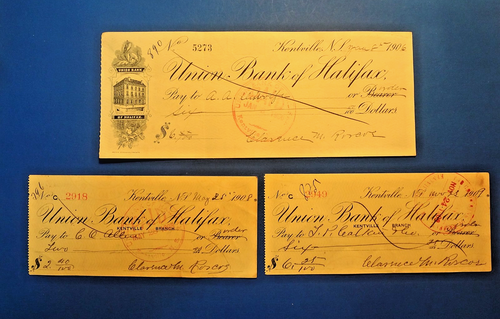 890 No 5273 Kentville, N.S. 190
UNION BANK
OF HALIFAX
Union Bank of Halifax,
Pay to or Bearer order
Six 00 Dollars
$ 6. Clarence M. Roscoe
No C 2918 Kentville, N.S. May 25 1908
Union Bank of Halifax,
KENTVILLE BRANCH
Pay to C.O. Allen or Bearer order
Two Dollars
$ 2 40/100 Clarence M. Roscoe
No C 835 Kentville, N.S. 190
Union Bank of Halifax,
KENTVILLE BRANCH
Pay to T.P. Calkin or Bearer order
Six Dollars
$ 6. 25/100 Clarence M. Roscoe